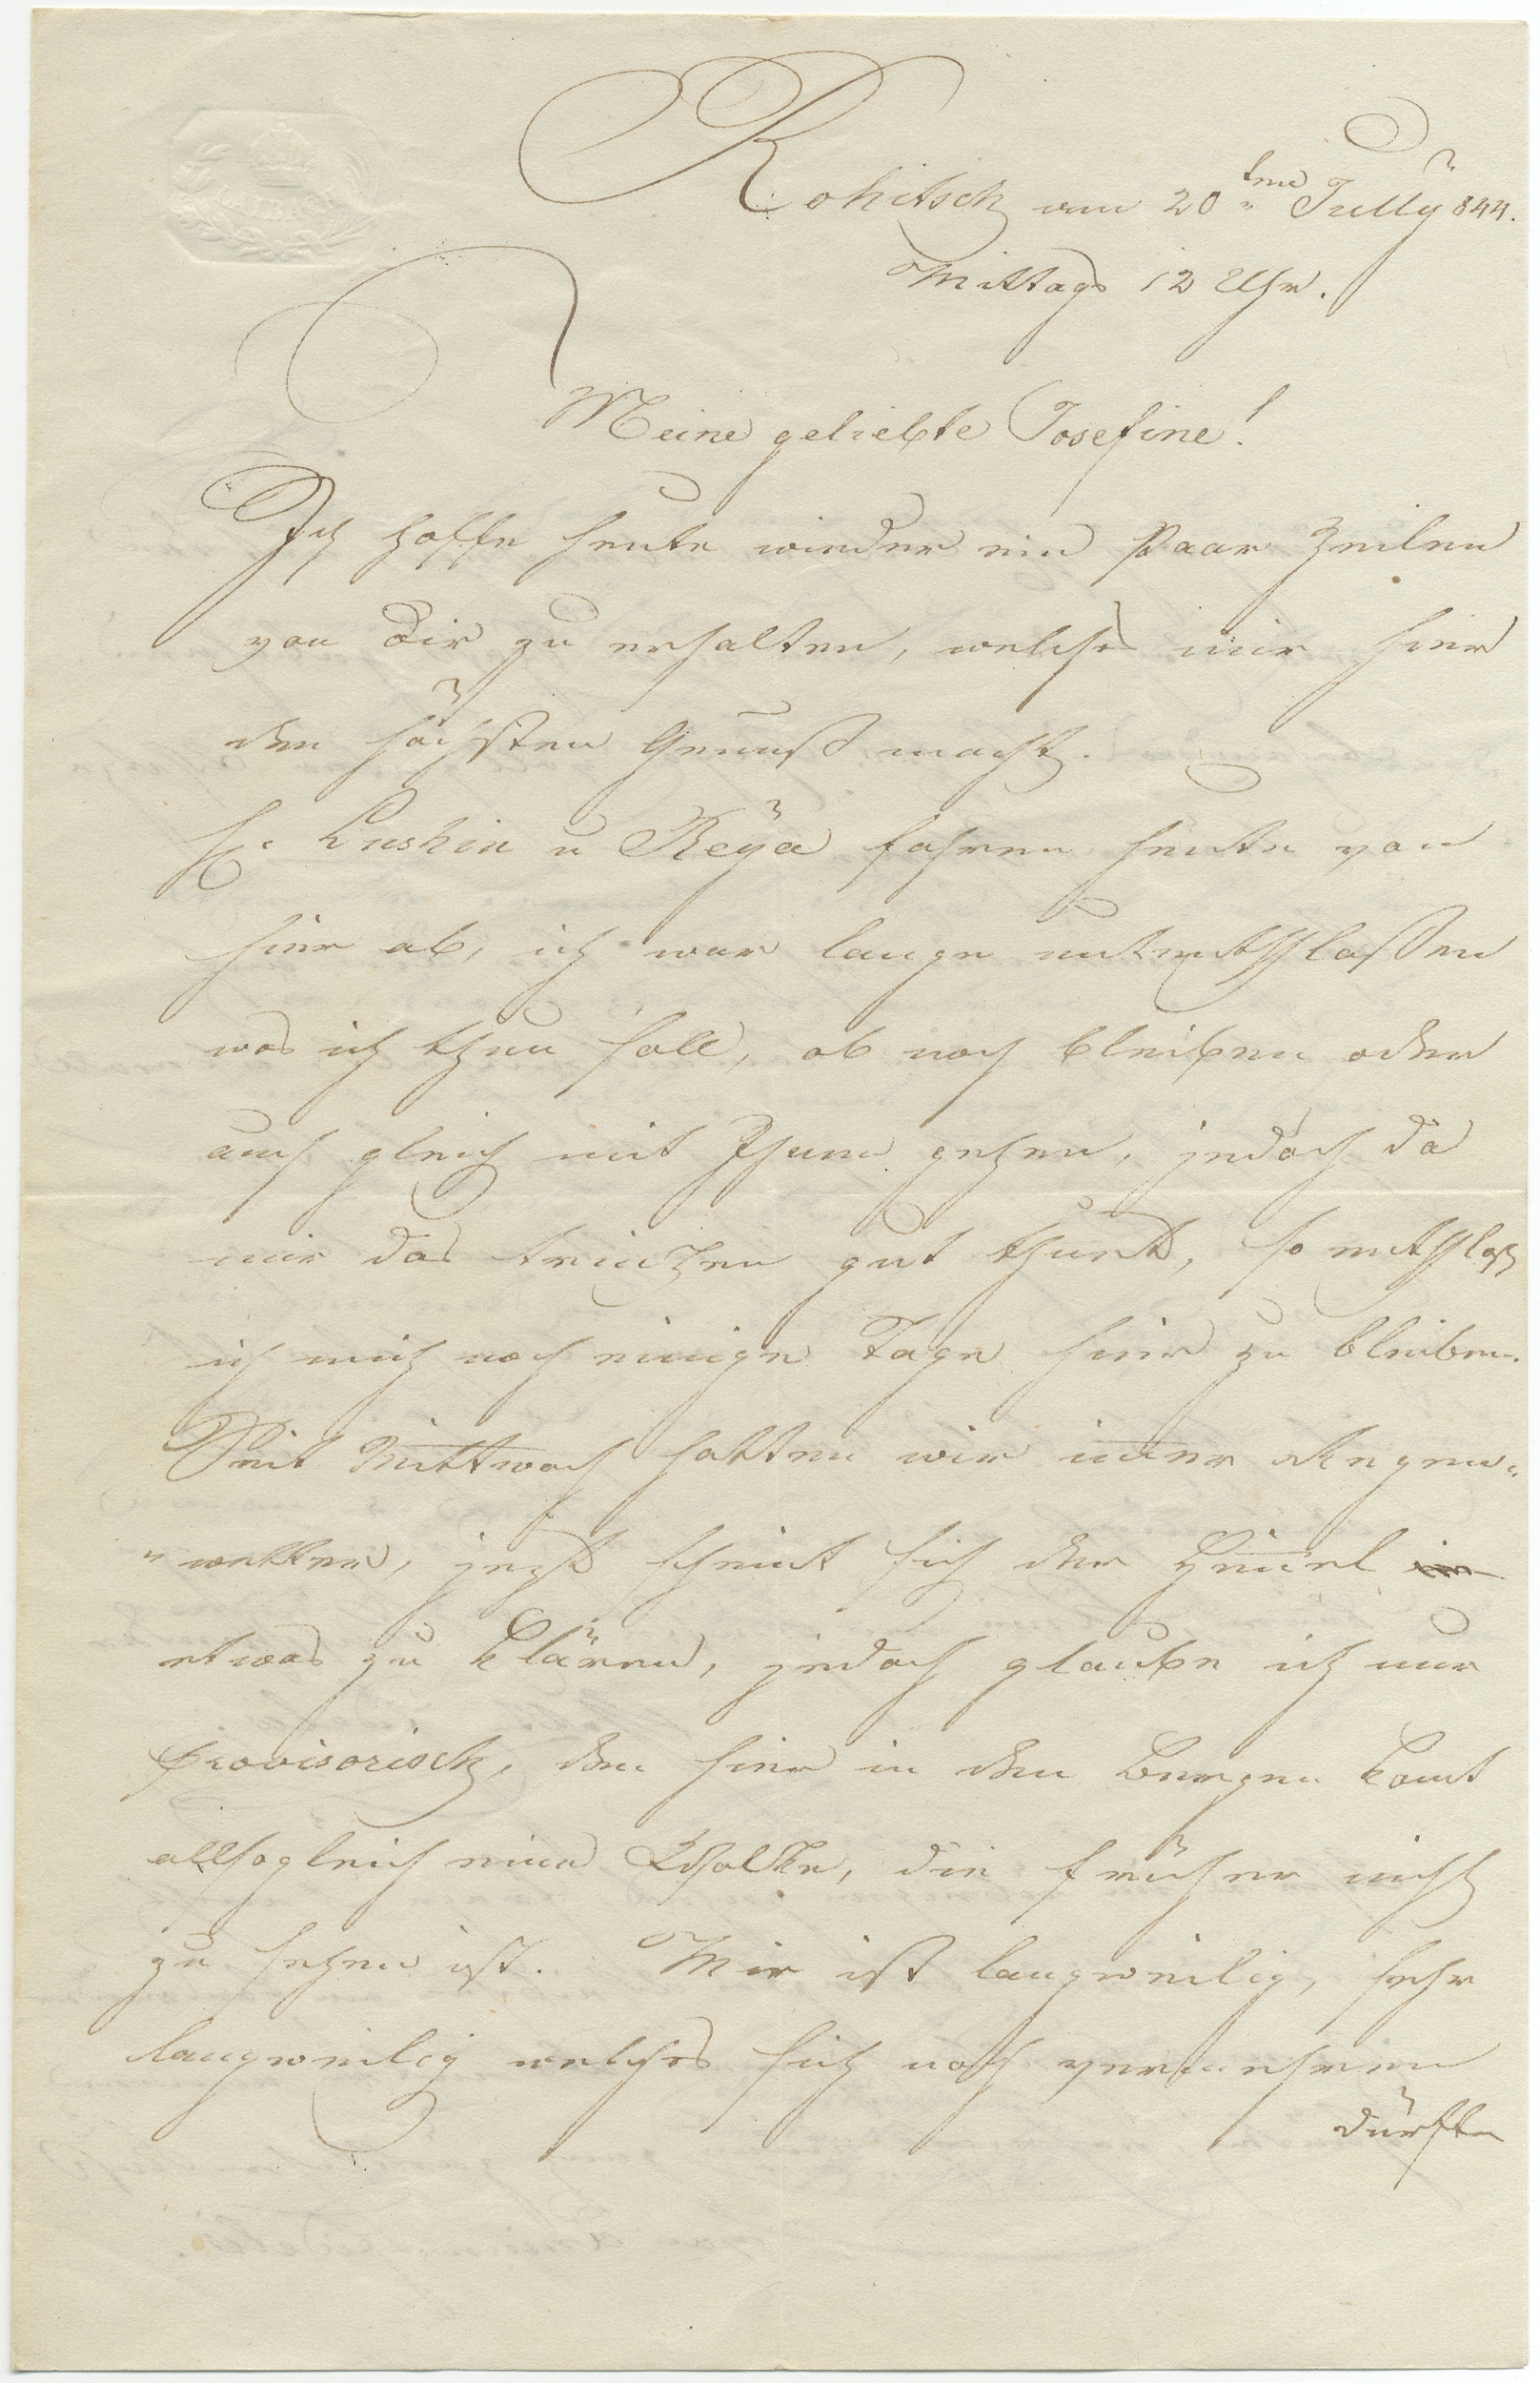 Rohitsch am 20ten Jully 844.
Mittags 12 Uhr.
Meine geliebte Josefine!
Ich hoffe heute wieder ein Paar Zeilen
von Dir zu erhalten, welches mir hier
den höchsten Genuß macht.
H. Luschin u Reÿa fahren heute von
hier ab, ich war lange unentschloßen
was ich thun soll, ob noch bleiben oder
auch gleich mit Ihnen gehen, jedoch da
mir das trinken gut thuet, so entschloß
ich mich noch einige Tage hier zu bleiben.
Seit Mittwoch hatten wir im̄er Regen-
wetter, jezt scheint sich der Him̄el
etwas zu klären, jedoch glaube ich nur
provisorisch, den hier in den Bergen kom̄t
allsogleich eine Wolke, die früher nicht
zu sehen ist. Mir ist langweilig, sehr
langweilig welches sich noch vermehren
dürfte